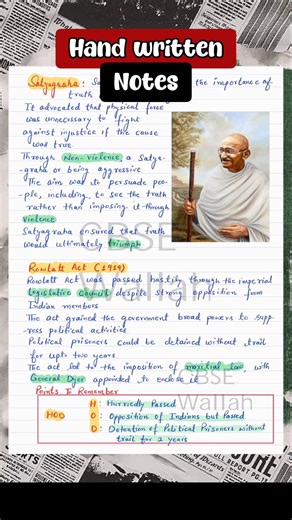 Hand written
Notes
Satyagraha: the importance of
truth
It advocated that physical force
was unnecessary to fight
against injustice if the cause
was true
Through Non-violence a Satya-
graha or being aggressive
The aim was to persuade peo-
ple, including to see the truth
rather than imposing it through
violence
Satyagraha ensured that truth
would ultimately triumph
Rowlatt Act (1919)
Rowlatt Act was passed hastily through the imperial
legislative council despite strong opposition from
Indian members
The act granted the government broad powers to supp-
ress political activities
Political prisoners could be detained without trail
for upto two years
The act led to the imposition of marstial law, with
General Dyer appointed to enclose it
Points To Remember
H: Hurriedly Passed
HOD O: Opposition of Indians but Passed
D: Detention of Political Prisoners without
trail for 2 years